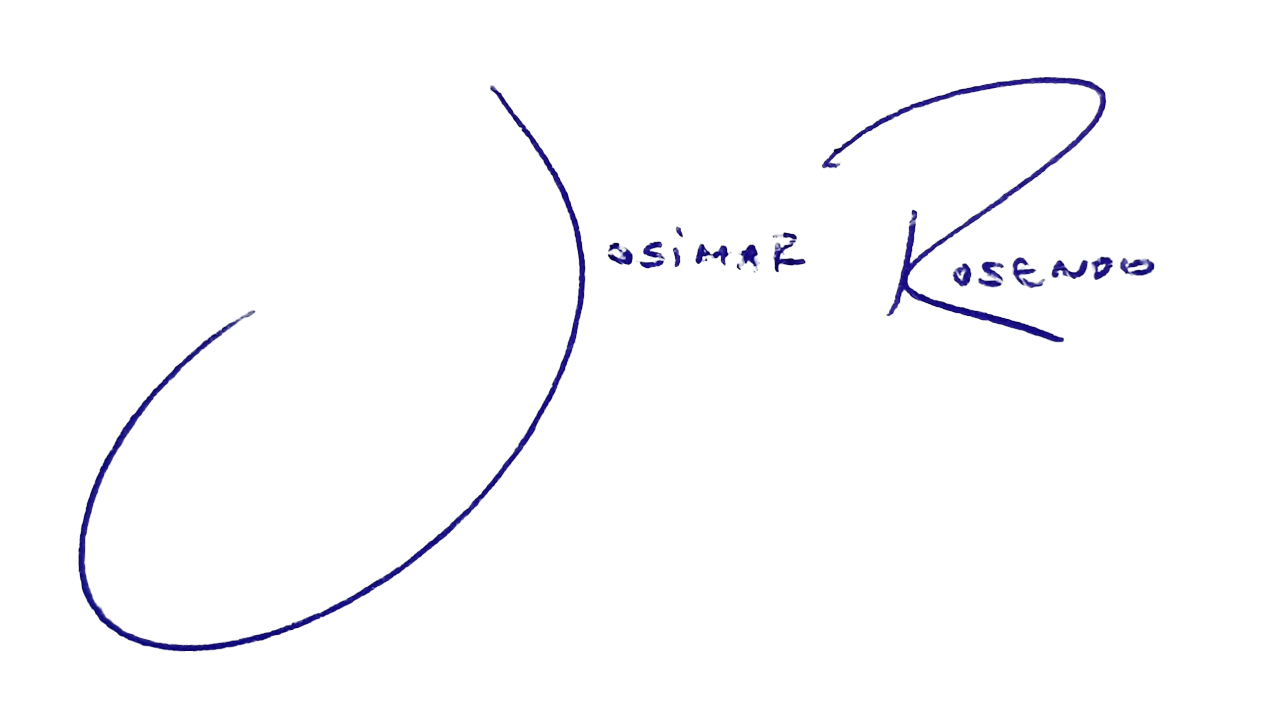 JOSiMAR ROSENDO